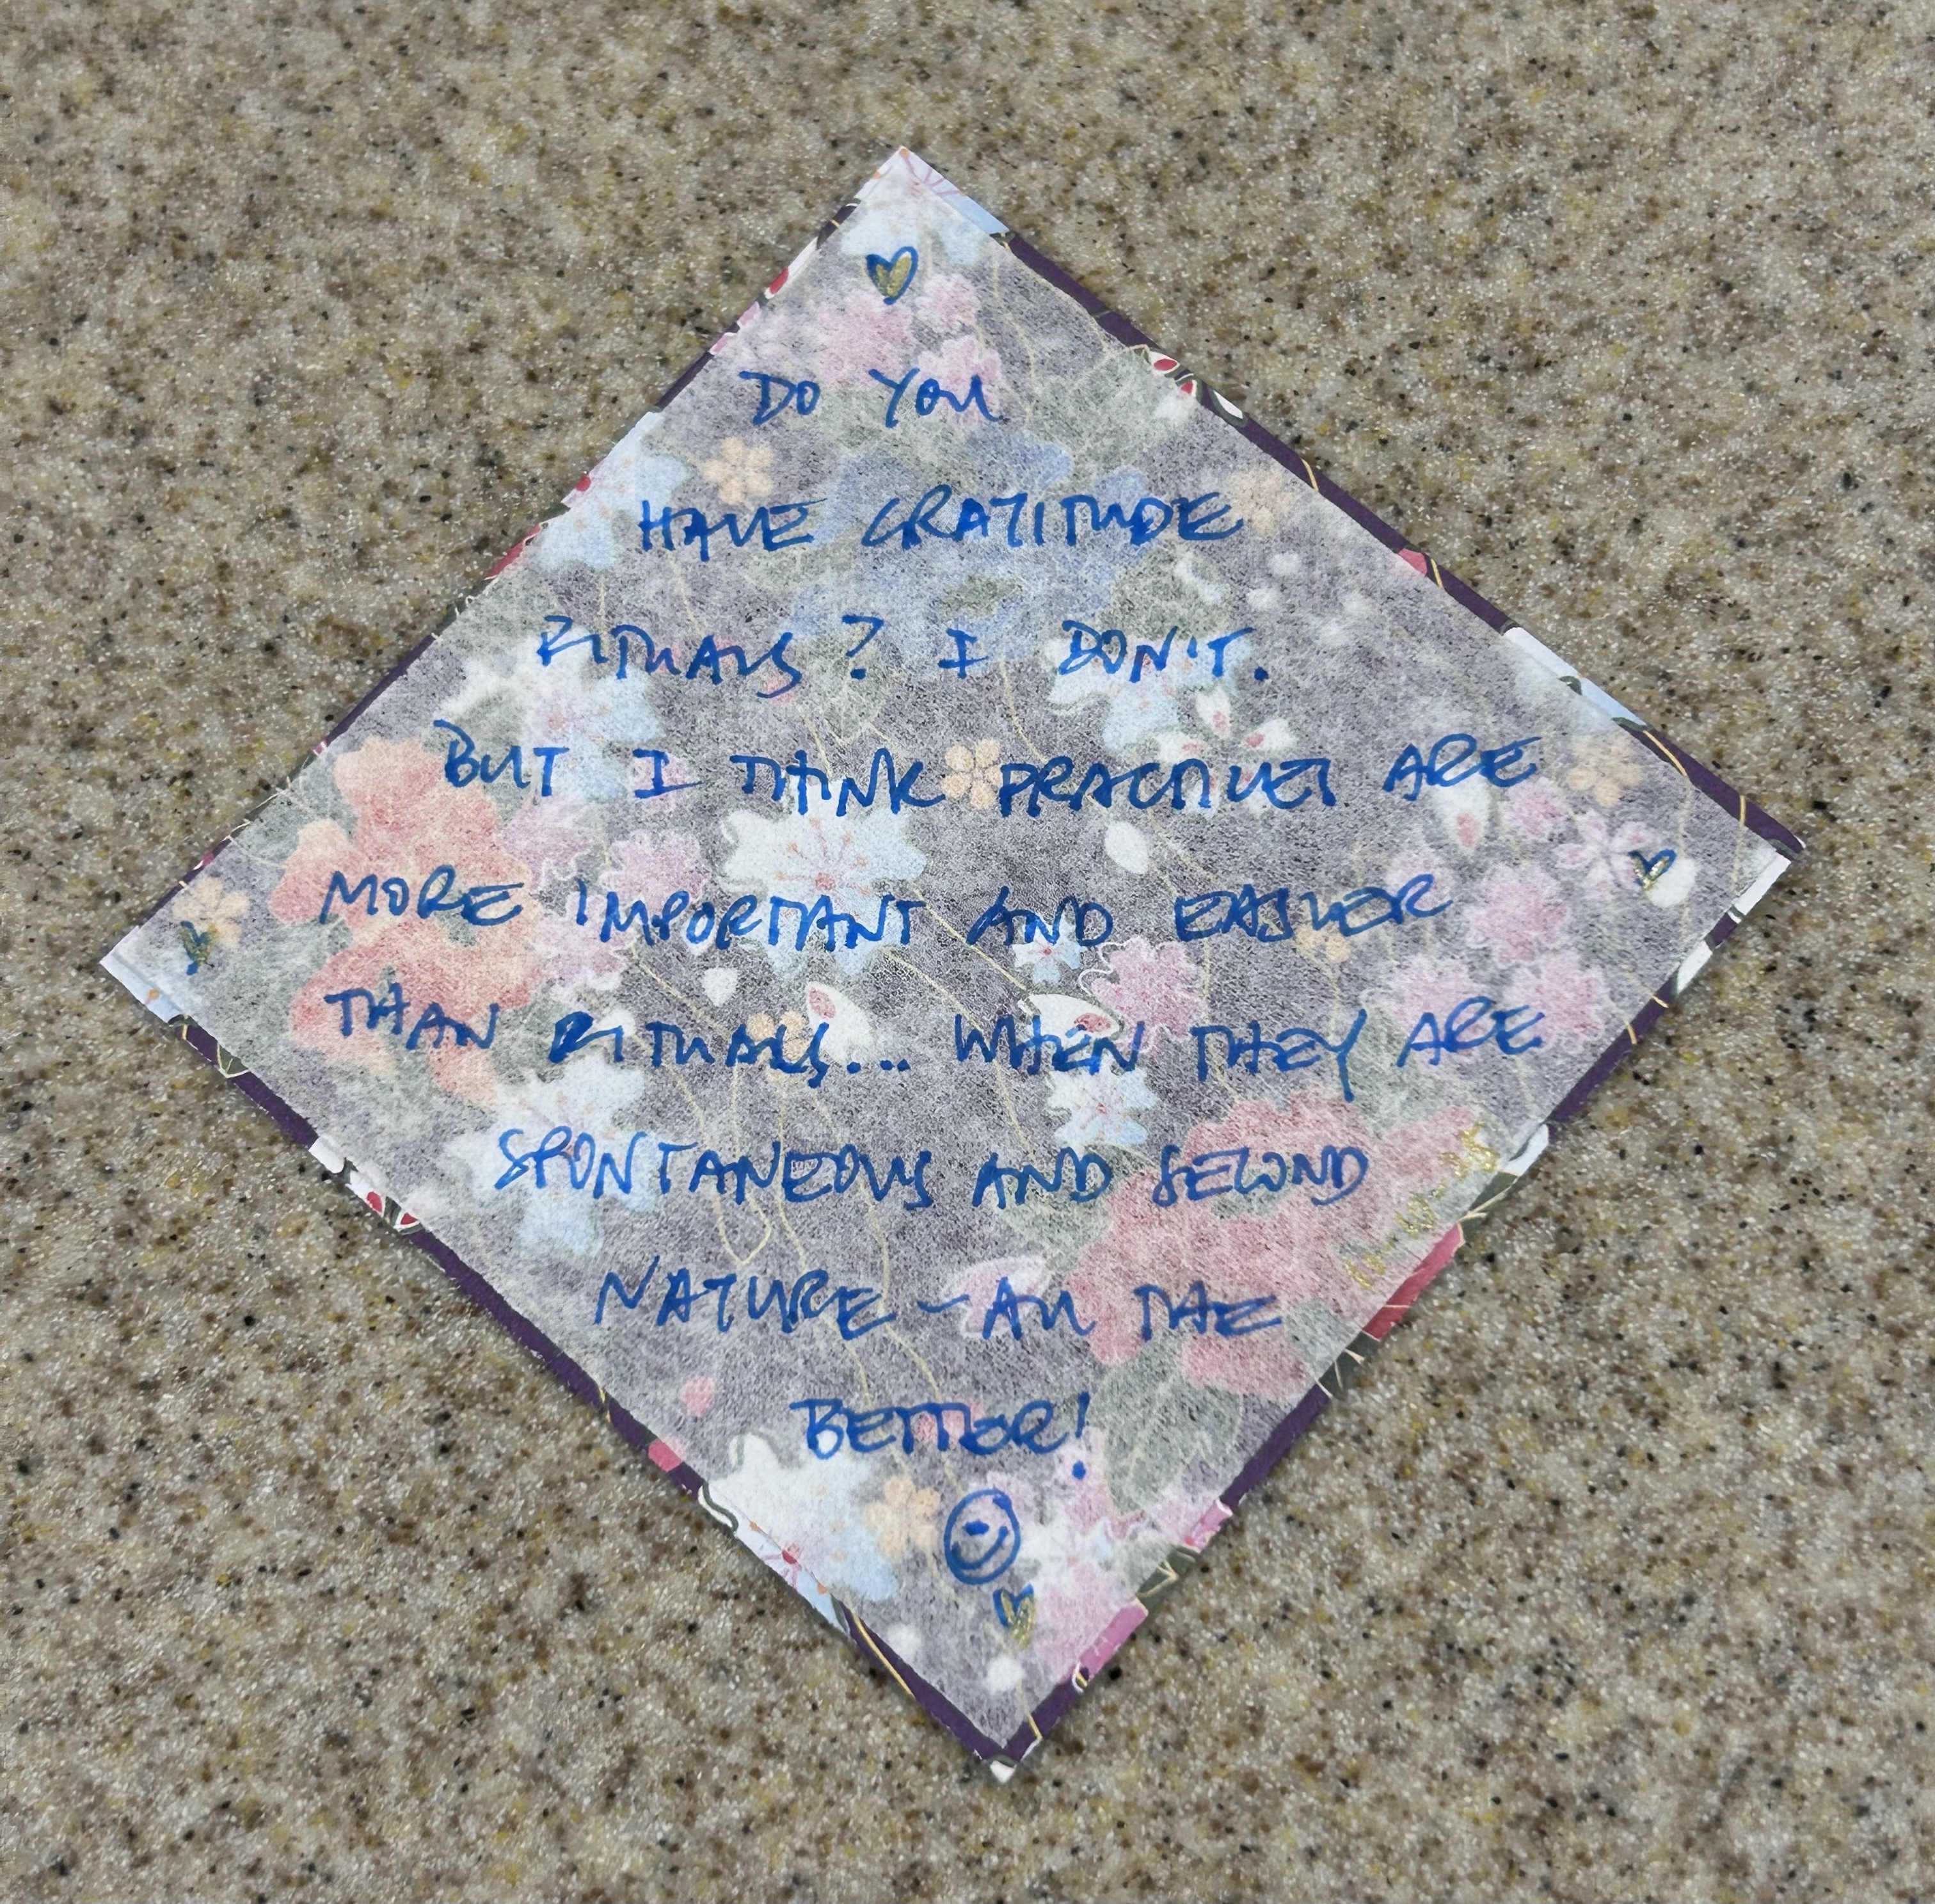 DO YOU
HAVE GRATITUDE
RITUALS? I DON'T.
BUT I THINK PRACTICES ARE
MORE IMPORTANT AND EASIER
THAN RITUALS... WHEN THEY ARE
SPONTANEOUS AND SECOND
NATURE - ALL THE
BETTER!